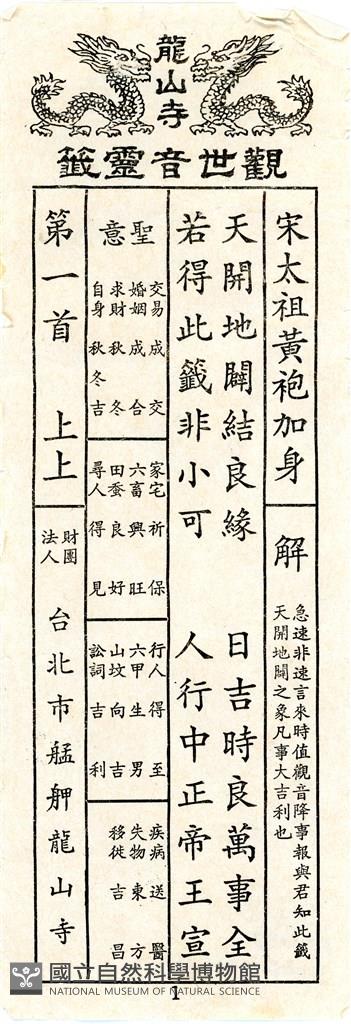 龍山寺
觀世音靈籤
宋太祖黃袍加身
解
急速非速言來時值觀音降事報與君知此籤
天開地闢之象凡事大吉利也
天開地闢結良緣 日吉時良萬事全
若得此籤非小可 人行中正帝王宣
聖意
交易 成 交
婚姻 成 合
求財 秋 冬
自身 秋冬吉
家宅 祈 保
六畜 興 旺
田蚕 良 好
尋人 得 見
行人 得 至
六甲 生 男
山坟 向 吉
訟詞 吉 利
疾病 送 醫
失物 東 方
移徙 吉 昌
第一首 上上
財團
法人
台北市艋舺龍山寺
國立自然科學博物館
NATIONAL MUSEUM OF NATURAL SCIENCE
1